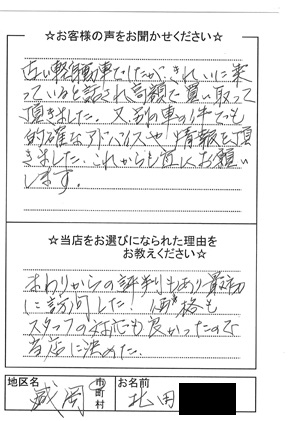 ☆お客様の声をお聞かせください☆
古い軽自動車でしたが、きれいに乗
っていると話され高額で買い取って
頂きました。又、新車の件でも
的確なアドバイスや情報を頂
きました。これからも宜しくお願い
します。
☆当店をお選びになられた理由を
お教えください☆
まわりからの評判もあり最初
に訪問した。価格も
スタッフの対応も良かったので
当店に決めた。
地区名 盛岡 市町村 お名前 北田